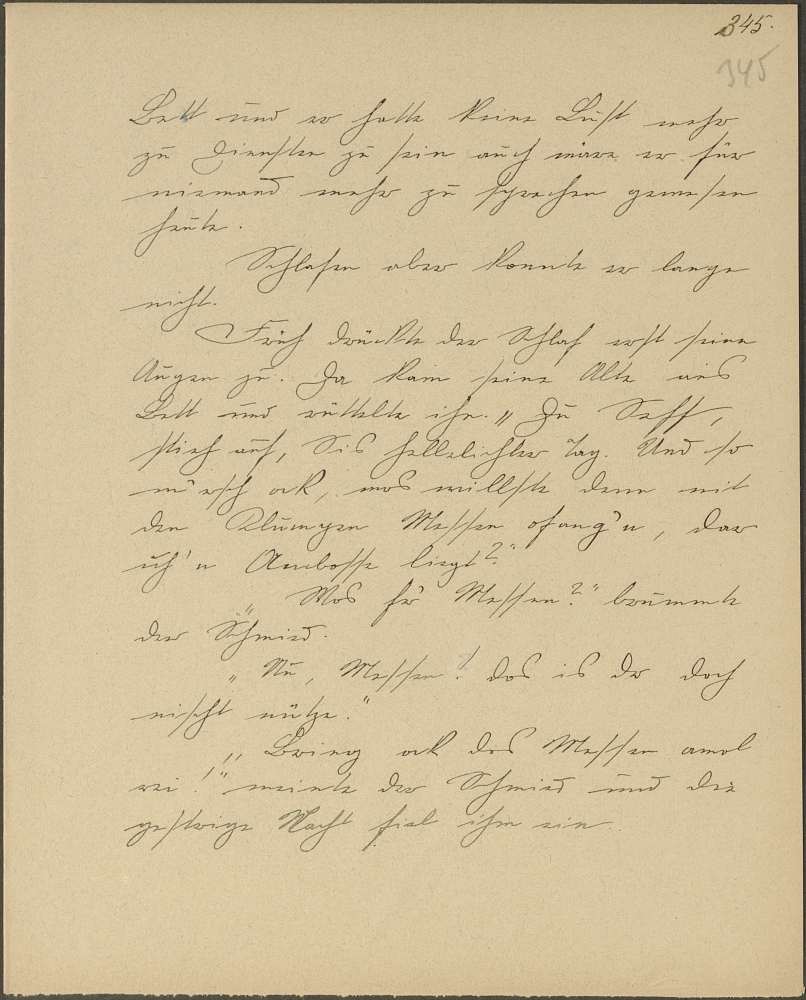 345.
345
Bett und er hatte keine Lust mehr
zu Diensten zu sein auch wäre er für
niemand mehr zu sprechen gewesen
heute.
Schlafen aber konnte er lange
nicht.
Früh drückte der Schlaf erst seine
Augen zu. Da kam seine Alte ans
Bett und rüttelte ihn. „Du Seff,
stieh auf, 's is hellelichter Tag. Und so
ock, wos willste denn mit
den Klumpen Messen ofang'n, dar
uf'n Ambosse liegt?"
„Wos fr' Messen?" brummte
der Schmied.
„Nu, Messen! dos is dr doch
nischt nütze."
„Bring ock dos Messen amol
rei!" meinte der Schmied und die
gestrige Nacht fiel ihm ein.